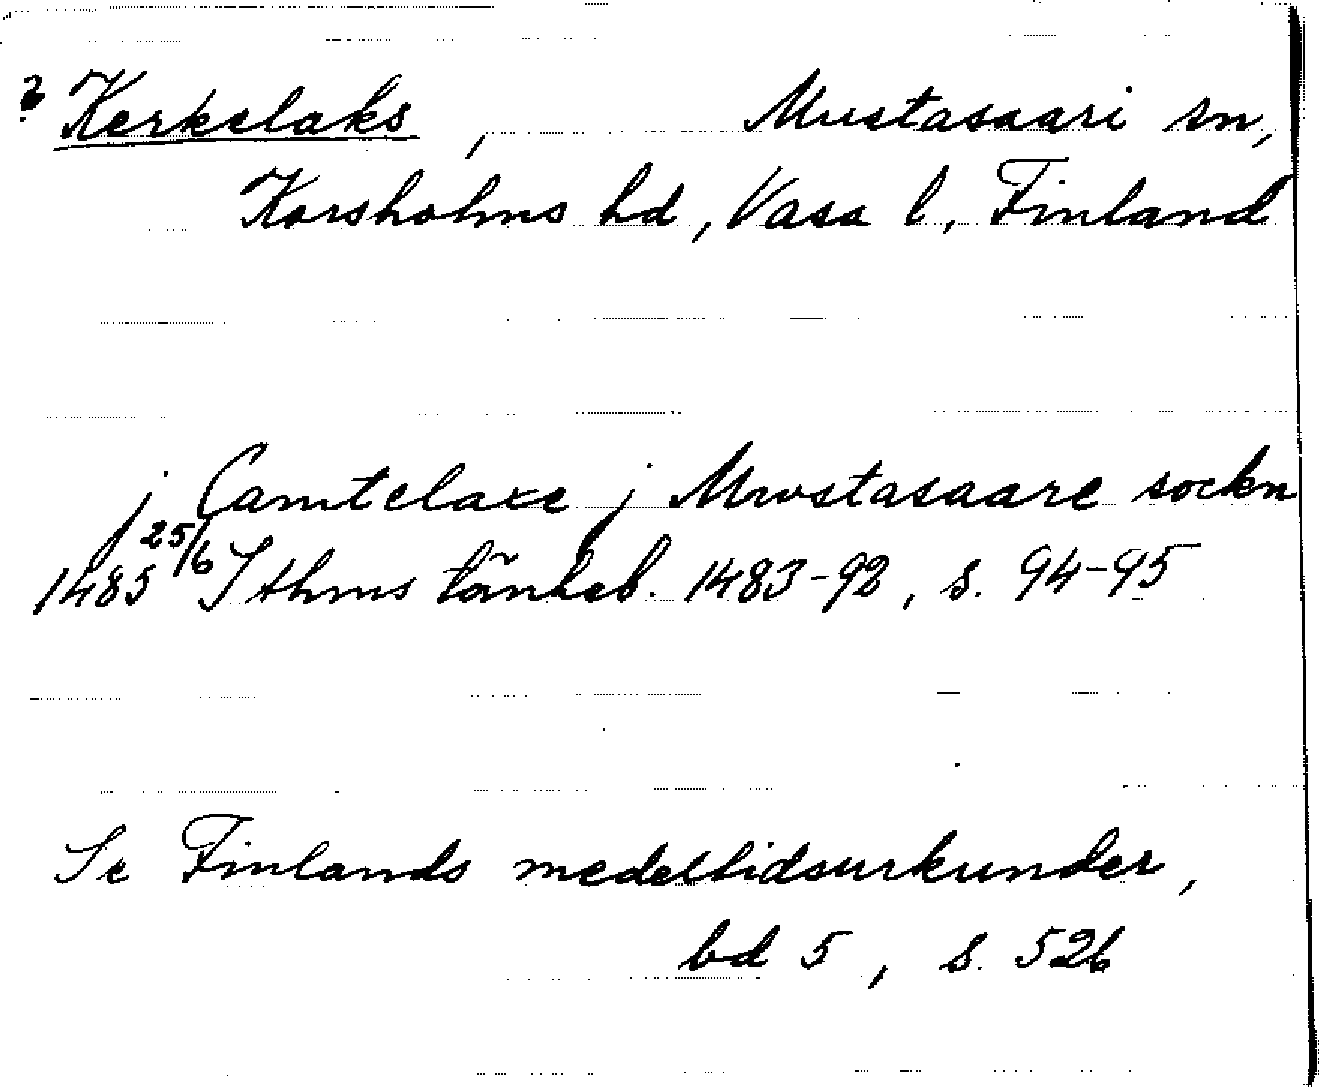 ? Kerkelaks, Mustasaari sn,
Korsholms hd, Vasa l, Finland
j Camtelaxe j Mwstasaare sockn
1485 25/6 Sthms tänkeb. 1483-92, s. 94-95
Se Finlands medeltidsurkunder,
bd 5, s. 526